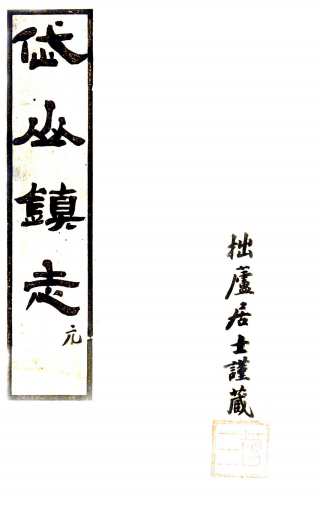 岱山鎮志
元
拙廬居士謹藏